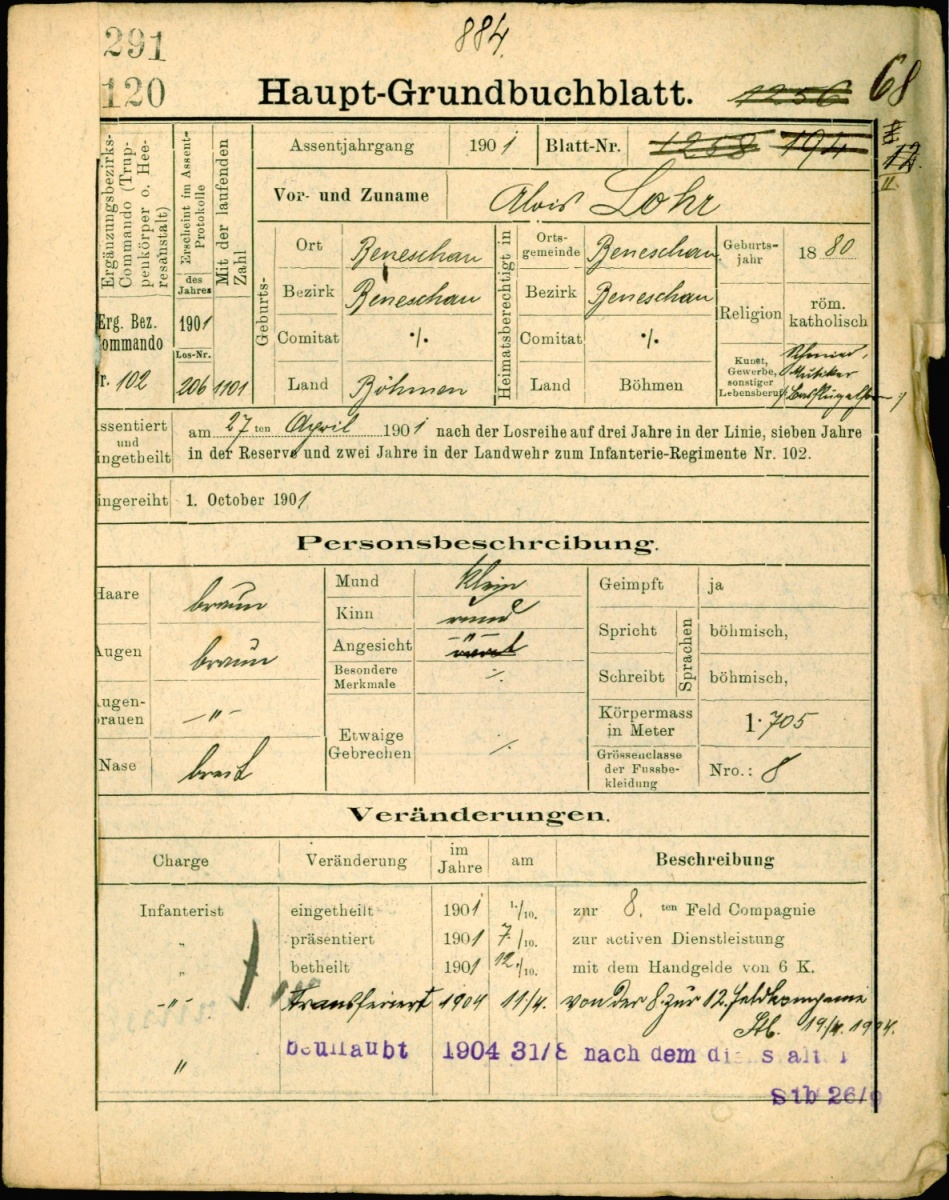 291
884
120
Haupt-Grundbuchblatt.
1256
68
Ergänzungsbezirks-Commando (Truppenkörper o. Heeresanstalt)
Erscheint im Assent-Protokolle
des Jahres
Mit der laufenden Zahl
Assentjahrgang 1901 Blatt-Nr. 1258 194
12.
II.
Vor- und Zuname Alois Lohr
Geburts-
Ort Beneschau
Bezirk Beneschau
Comitat ·/.
Land Böhmen
Heimatsberechtigt in
Ortsgemeinde Beneschau
Bezirk Beneschau
Comitat ·/.
Land Böhmen
Geburtsjahr 1880
Religion röm. katholisch
Kunst, Gewerbe, sonstiger Lebensberuf Schmied,
Erg. Bez.
ommando
r. 102
1901
Los-Nr.
206 1101
ssentiert und ingetheilt
am 27ten April 1901 nach der Losreihe auf drei Jahre in der Linie, sieben Jahre
in der Reserve und zwei Jahre in der Landwehr zum Infanterie-Regimente Nr. 102.
ingereiht 1. October 1901
Personsbeschreibung.
Haare braun
Augen braun
ugenbrauen —"—
Nase breit
Mund klein
Kinn rund
Angesicht —"—
Besondere Merkmale ·/.
Etwaige Gebrechen ·/.
Geimpft ja
Spricht böhmisch,
Sprachen
Schreibt böhmisch,
Körpermass in Meter 1·705
Grössenclasse der Fussbekleidung Nro.: 8
Veränderungen.
Charge Veränderung im Jahre am Beschreibung
Infanterist eingetheilt 1901 1./10. zur 8. ten Feld Compagnie
" präsentiert 1901 7/10. zur activen Dienstleistung
" betheilt 1901 12./10. mit dem Handgelde von 6 K.
—"— Transferiert 1904 11/4. von der 8. zur 12. Feldkompanie
Stb. 19/4. 1904.
" beurlaubt 1904 31/8 nach dem
Stb 26/9